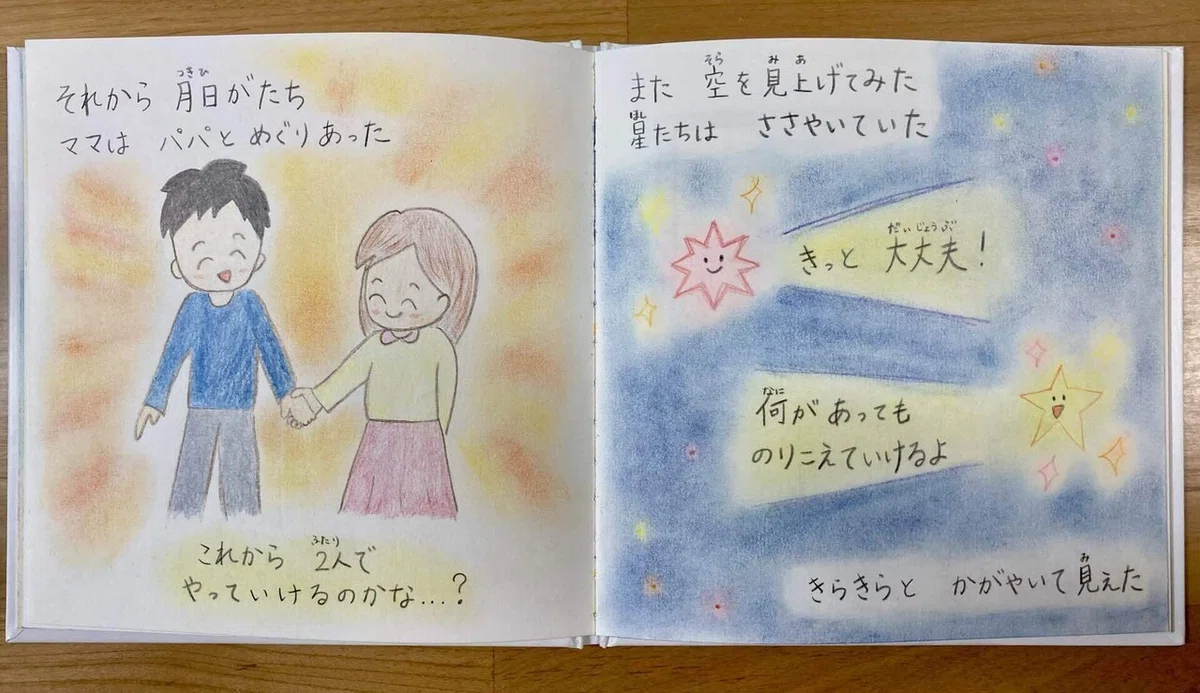 それから 月日がたち
ママは パパと めぐりあった
これから 2人で
やっていけるのかな...?
また 空を見上げてみた
星たちは ささやいていた
きっと 大丈夫!
何が あっても
のりこえていけるよ
きらきらと かがやいて見えた